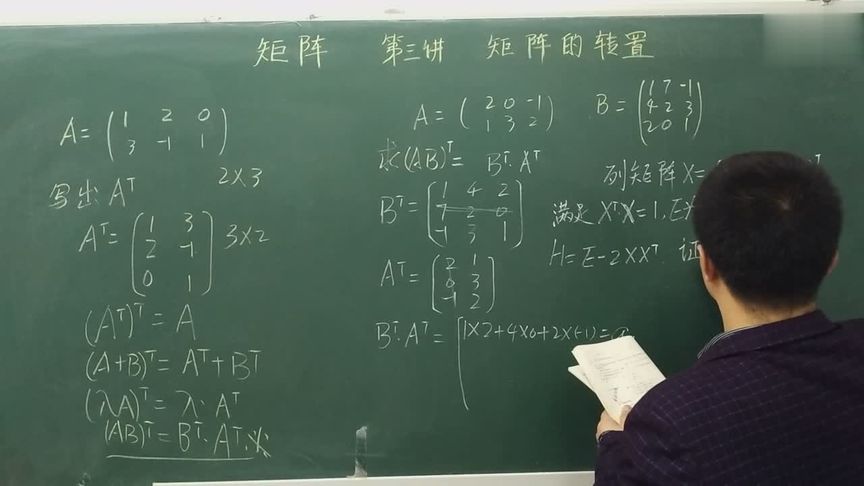 矩阵 第三讲 矩阵的转置
A = ( 1 2 0
3 -1 1 )
写出 Aᵀ 2×3
Aᵀ = ( 1 3
2 -1
0 1 ) 3×2
(Aᵀ)ᵀ = A
(A+B)ᵀ = Aᵀ+Bᵀ
(λA)ᵀ = λ·Aᵀ
(AB)ᵀ = Bᵀ·Aᵀ.※
A = ( 2 0 -1
1 3 2 )
B = ( 1 7 -1
4 2 3
2 0 1 )
求(AB)ᵀ = Bᵀ·Aᵀ
Bᵀ = ( 1 4 2
7 2 0
-1 3 1 )
Aᵀ = ( 2 1
0 3
-1 2 )
Bᵀ·Aᵀ = [ 1×2+4×0+2×(-1)=
列矩阵X=
满足 XᵀX=1, E
H=E-2XXᵀ. 证